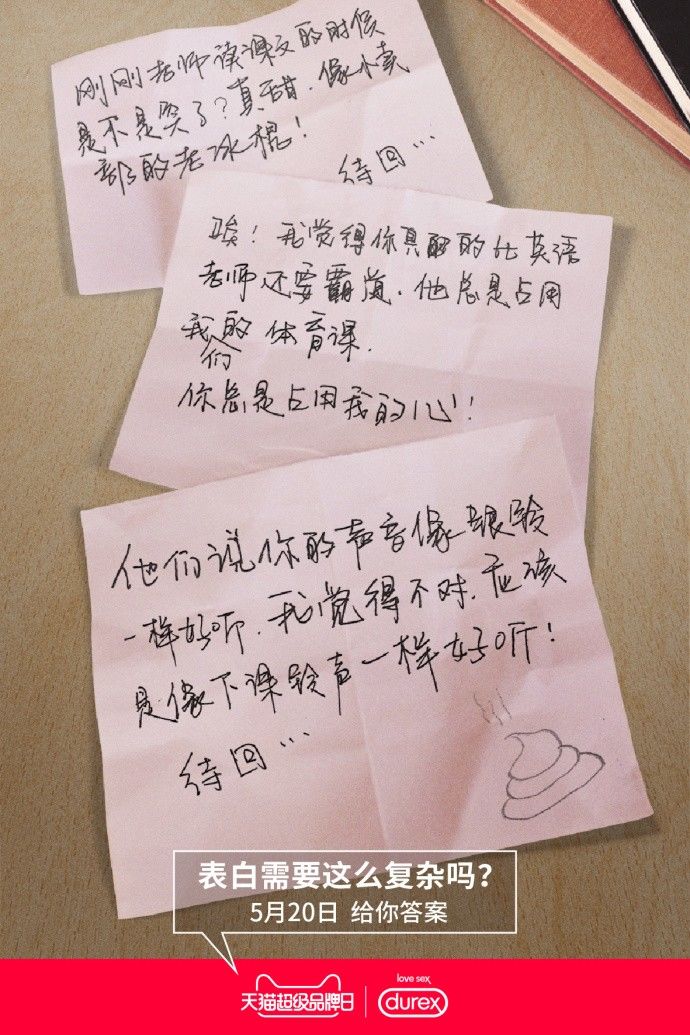 刚刚老师读课文的时候
是不是哭了?真甜.像小卖
部的老冰棍!
待回...
唉!我觉得你真的比英语
老师还要霸道.他总是占用
我们的体育课.
你总是占用我的心!
他们说你的声音像银铃
一样好听.我觉得不对.应该
是像下课铃声一样好听!
待回...
表白需要这么复杂吗?
5月20日 给你答案
天猫超级品牌日
love sex
durex